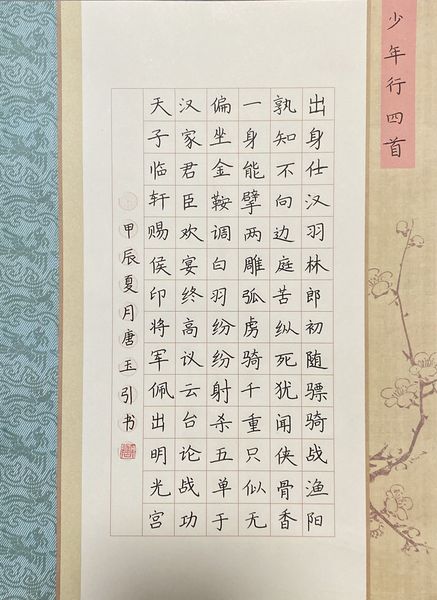 少年行四首
出身仕汉羽林郎初随骠骑战渔阳
孰知不向边庭苦纵死犹闻侠骨香
一身能擘两雕弧虏骑千重只似无
偏坐金鞍调白羽纷纷射杀五单于
汉家君臣欢宴终高议云台论战功
天子临轩赐侯印将军佩出明光宫
甲辰夏月唐玉引书